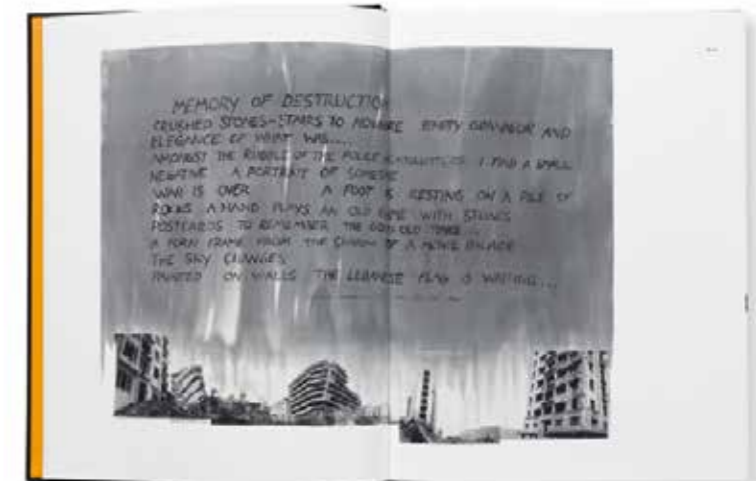 MEMORY OF DESTRUCTION
CRUSHED STONES-STAIRS TO EMPTY GRANDEUR AND
ELEGANCE OF WHAT WAS....
AMONGST THE RUBBLE OF THE POLICE HEADQUARTERS I FIND A SMALL
NEGATIVE A PORTRAIT OF SOMEONE
WAR IS OVER A FOOT IS RESTING ON A PILE OF
ROCKS A HAND PLAYS AN OLD GAME WITH STONES
POSTCARDS TO REMEMBER THE GOOD OLD TIMES...
A TORN FRAME FROM THE OF A MOVIE PALACE
THE SKY CHANGES
PAINTED ON WALLS THE LEBANESE FLAG IS WAITING...